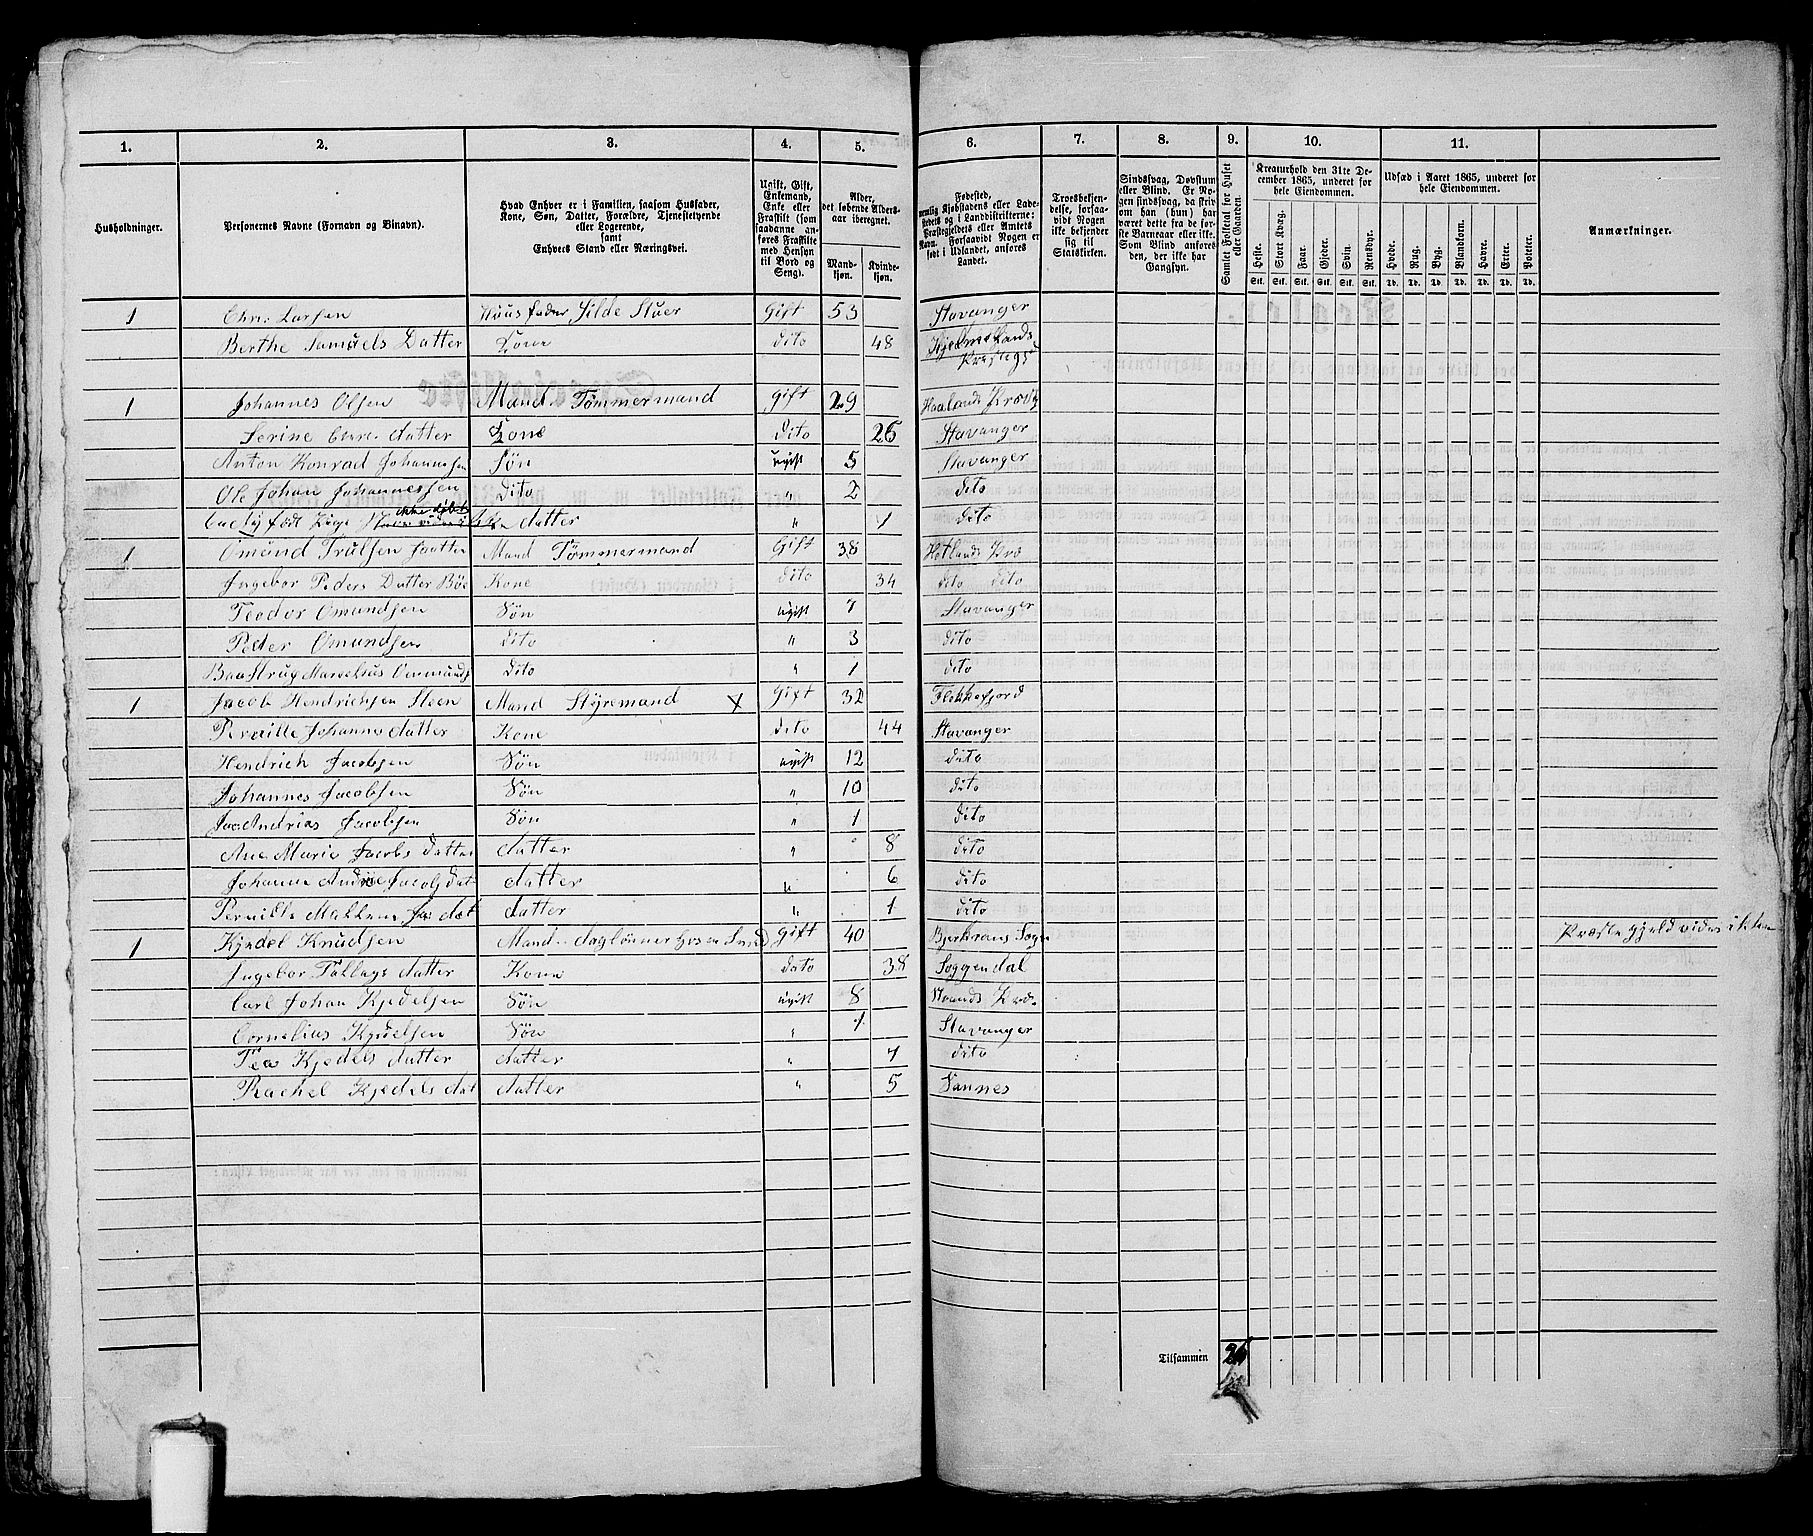 1. 2. 3. 4. 5. 6. 7. 8. 9. 10. 11.
Husholdninger.
Personernes Navne (Fornavn og Binavn).
Hvad Enhver er i Familien, saasom Husfader, Kone, Søn, Datter, Forældre, Tjenestetyende eller Logerende, samt Enhvers Stand eller Næringsvei.
Ugift, Gift, Enkemand, Enke eller Fraskilt (som saadanne anføres Fraskilte med Hensyn til Bord og Seng).
Alder, det løbende Aldersaar iberegnet.
Mandkjøn. Kvindekjøn.
Fødested, nemlig Kjøbstadens eller Ladestedets og i Landdistrikterne: Præstegjeldets eller Amtets Navn. Forsaavidt Nogen er født i Udlandet, anføres Landet.
Troesbekjendelse, forsaavidt Nogen ikke bekjender sig til Statskirken.
Sindssvag, Døvstum eller Blind. Er Nogen sindssvag, da skriv om han (hun) har været dette fra de første Barneaar eller ikke. Som Blind anføres den, der ikke har Gangsyn.
Samlet Folketal for Huset eller Gaarden.
Kreaturhold den 31te December 1865, underet for hele Eiendommen.
Heste. Stort Kvæg. Faar. Gjeder. Svin. Rensdyr.
Stk. Stk. Stk. Stk. Stk. Stk.
Udsæd i Aaret 1865, underet for hele Eiendommen.
Hvede. Rug. Byg. Blandkorn. Havre. Erter. Poteter.
Td. Td. Td. Td. Td. Td. Td.
Anmærkninger.
1 Chr. Larsen Huusfader Silde Stuer Gift 53 Stavanger
Berthe Samuels Datter Kone dito 48 Hjelmelands Prestegd
1 Johannes Olsen Mand Tømmermand Gift 29 Haalands Præstg
Serine Chr. datter Kone dito 26 Stavanger
Anton Konrad Johannesen Søn ugift 5 Stavanger
Ole Johan Johannessen dito " 2 dito
født Pige ikke døbt datter " 1 dito
1 Omund Trulsen Mand Tømmermand Gift 38 Hetlands Præ
Ingebor Peders Datter Bøe Kone dito 34 dito dito
Teodor Omundsen Søn ugift 7 Stavanger
Peder Omundsen dito " 3 dito
Baastrug Marselius Ommunds dito " 1 dito
1 Jacob Hendrichsen Steen Mand Styremand X Gift 32 Flekkefjord
Pernille Johanns datter Kone dito 44 Stavanger
Hendrich Jacobsen Søn ugift 12 dito
Johannes Jacobsen Søn " 10 dito
Andrias Jacobsen Søn " 1 dito
Ane Marie Jacobs datter datter " 8 dito
Johanne Andrie Jacobs dat datter " 6 dito
Pernille Malkene Ja: dat datter " 1 dito
1 Kjedel Knudsen Mand daglønner Gift 40 Bjerkrans Sogn Præstegjeld vides ikke
Ingebor Tallags datter Kone dato 38 Soggendal
Carl Johan Kjedelsen Søn ugift 8 Strands Præ.
Cornelius Kjedelsen Søn " 1 Stavanger
Tea Kjedels datter datter " 1 dito
Rachel Kjedels dat datter " 5 Vannes
Tilsammen 26